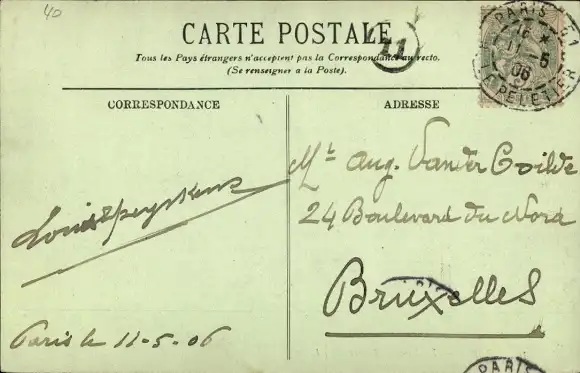 40
CARTE POSTALE
11
Tous les Pays étrangers n'acceptent pas la Correspondance au recto.
(Se renseigner a la Poste).
PARIS 57
11 -5
06
PELETIER
CORRESPONDANCE
ADRESSE
Mr Aug. Vander
24 Boulevard du Nord
Bruxelles
Louis
Paris le 11-5-06
PARIS